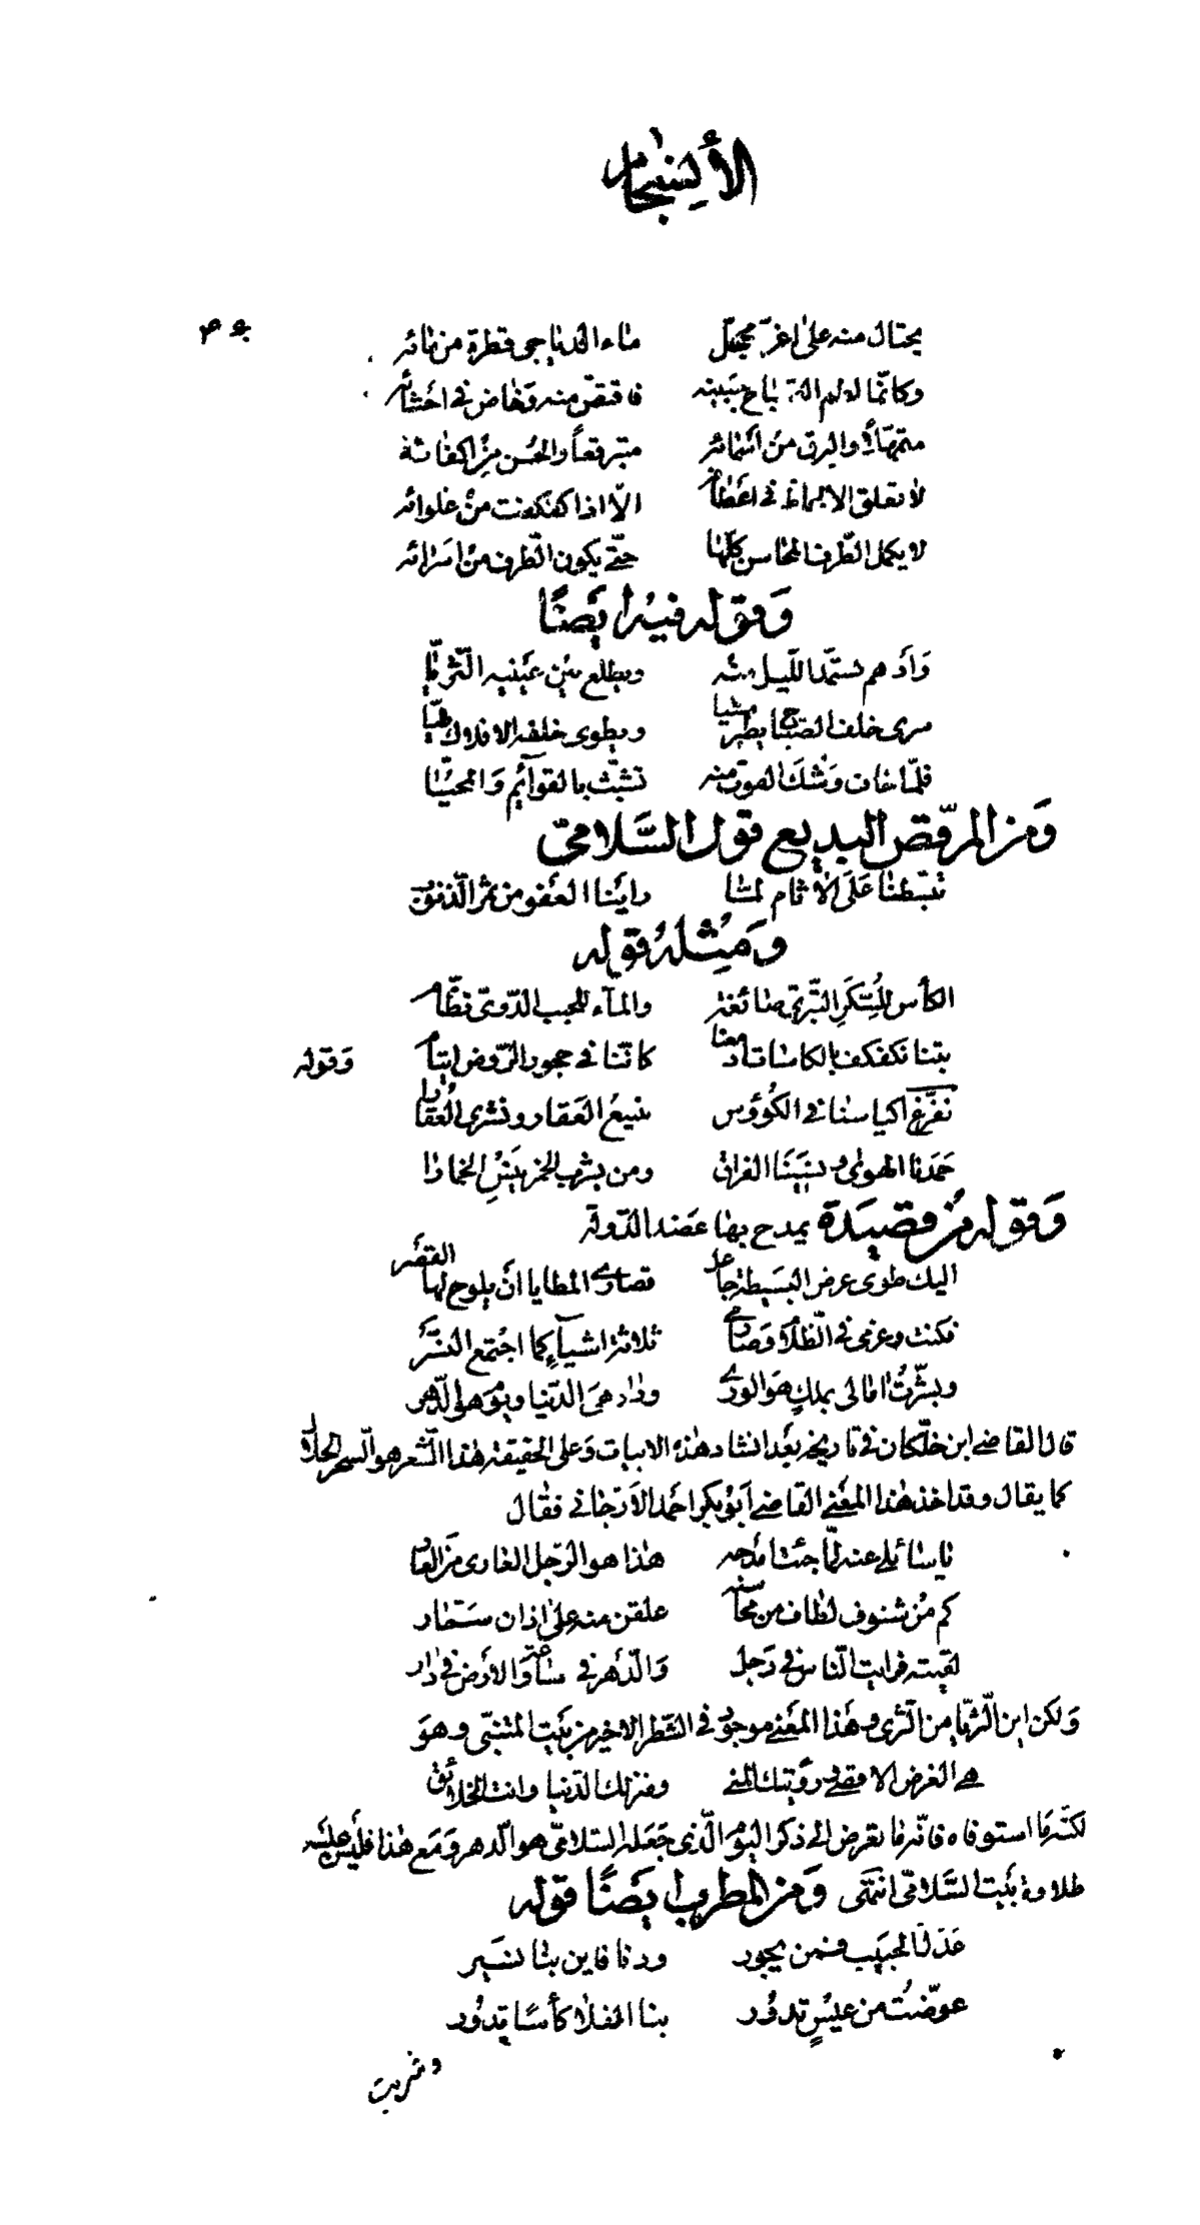 الأنسجام
يختال منه على اغرّ محجّل ماء الدياجى قطرة من مائه
وكانّما لطم الصباح جبينه فاقتصّ منه وخاض فى احشائه
متمهّلاً والبرق من اسمائه متبرقعاً والحسن من اكفائه
لا تعلق الالحاظ فى اعطافه الّا اذا كفكفت من غلوائه
لا يكمل الطرف المحاسن كلّها حتّى يكون الطّرف من اسرائه
وَقوله فيه ايضًا
وَأدهم يستمدّ اللّيل منه ويطلع بين عينيه الثّريّا
سرى خلف الصّباح يطير مشيا ويطوى خلفه الافلاك طيّا
فلمّا خاف وشك الفوت منه تشبّث بالقوآئم وَالمحيّا
وَمن المرقّص البديع قول السَّلامىّ
تبسّطنا عَلَى الآثام لمّا راينا العفو من ثمر الذّنوب
وَمِثله قوله
الكأس للسّكر التّبرىّ صائغة والمآء للحبب الدّرّىّ نظّام
بتنا نكفكف بالكاسات ادمعنا كاننا فى حجور الرّوض ايتام وَقوله
نفرّغ اكياسنا فى الكُؤوس نبيع العَقار ونشرى العُقارا
حَمدنا الهوى ونسينا الفراق ومن يشرب الخمر ينس الخمارا
وَقوله من قصيدَة يمدح بها عضد الدّولة
اليك طوى عرض البسيطة جاعل قصارى المطايا أن يلوح لها القصر
فكنت وعزمى فى الظّلام وَصارمى ثلاثة اشيآء كما اجتمع النسر
وبشّرتُ امالى بملكٍ هو الورى ودار هى الدّنيا ويوم هو الدّهر
قال القاضى ابن خلّكان فى تاريخه بعد انشاد هذه الابيات وَعلى الحقيقة هذا الشّعر هو السحر الحلال
كما يقال وقد اخذ هذا المعنى القاضى ابو بكر احمد الارّجانى فقال
يا سائلى عنه لمّا جئت امدحه هذا هو الرّجل العارى من العار
كم من شنوف لطاف من محاسنه علقن منه على اذان سمّار
لقيته فرايت النّاس فى رَجل وَالدّهر فى ساعة وَالارض فى دار
وَلكن اين الثريّا من الثرى وهذا المعنى موجود فى الشّطر الاخير من بيت المتنبّى وهو
هى الغرض الاقصى ورؤيتك المنى ومنزلك الدّنيا وانت الخلائق
لكنّه ما استوفاه فانّه ما تعرض الى ذكر اليوم الّذى جَعَله السّلامىّ هو الدهر وَمَع هذا فليس عليه
طلاوة بيت السّلامى انتهى وَمن المطرب ايضًا قوله
عَدَل الحبيب فمن يجور ودنا فاين بنا نسير
عوّضتُ من عيسٍ تدور بنا الفلا كأسًا تدُور
وشربت